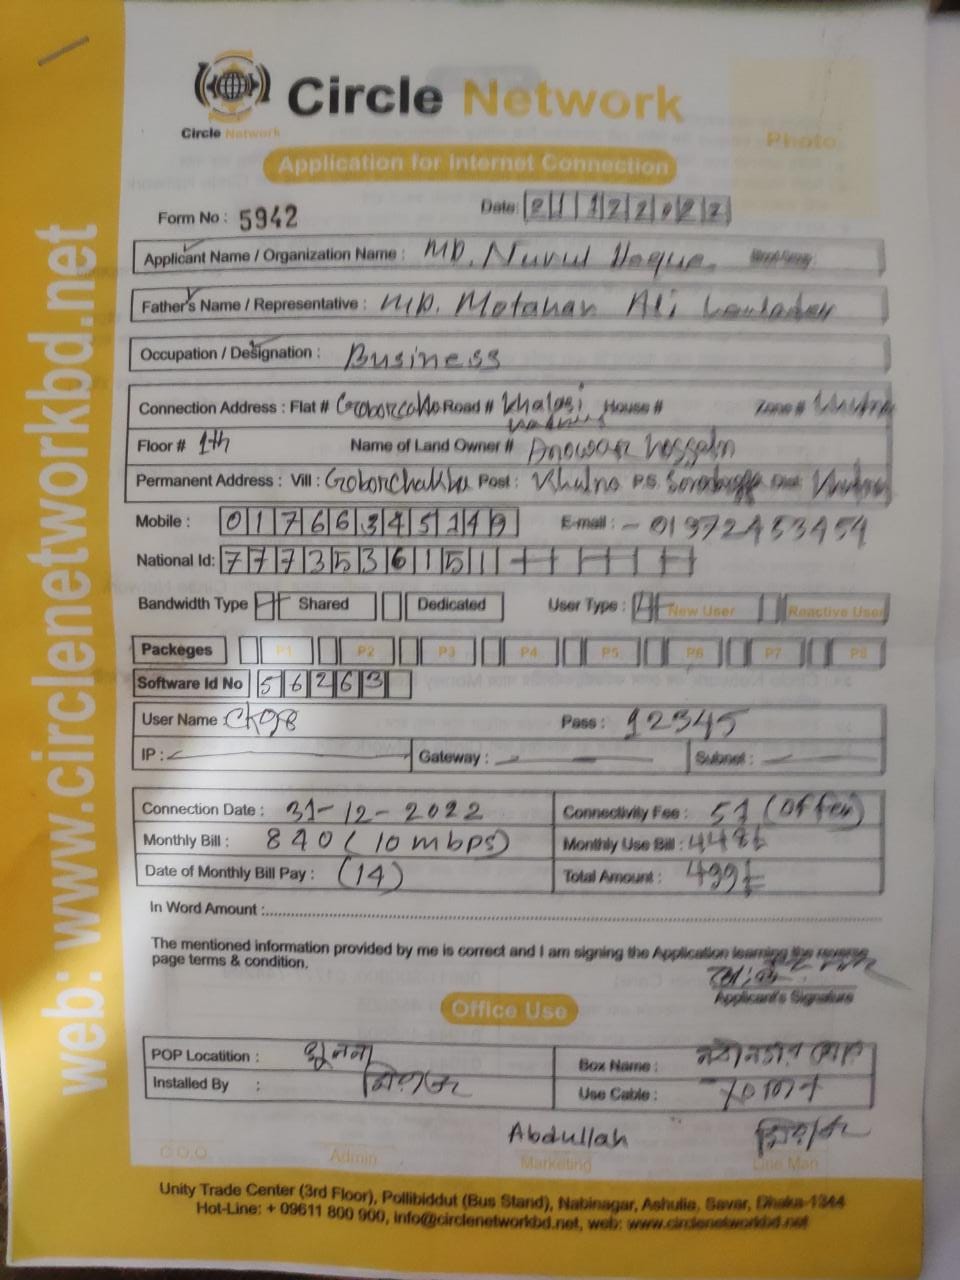 Circle Network
Circle Network
Photo
Application for Internet Connection
Form No : 5942
Date: 21122022
Applicant Name / Organization Name : MD. Nurul Hoque.
Father's Name / Representative : MD. Motahar Ali
Occupation / Designation : Business
Connection Address : Flat # Road # Khalasi House # Zone #
Floor # 1th Name of Land Owner # Anowar Hossain
Permanent Address : Vill : Goborchakha Post : Khulna P.S. Dist:
Mobile : 01766345149 E-mail : - 01972453454
National Id: 7773536151
Bandwidth Type Shared Dedicated User Type : New User Reactive User
Packeges P1 P2 P3 P4 P5 P6 P7 P8
Software Id No 56263
User Name : Pass : 12345
IP : Gateway : Subnet :
Connection Date : 31-12-2022 Connectivity Fee : 51 (Offer)
Monthly Bill : 840 (10 mbps) Monthly Use Bill :
Date of Monthly Bill Pay : (14) Total Amount :
In Word Amount :
The mentioned information provided by me is correct and I am signing the Application learning the reverse
page terms & condition.
Applicant's Signature
Office Use
POP Locatition : খুলনা Box Name :
Installed By : Use Cable :
Abdullah
C.O.O. Admin Marketing Line Man
Unity Trade Center (3rd Floor), Pollibiddut (Bus Stand), Nabinagar, Ashulia, Savar, Dhaka-1344
Hot-Line: + 09611 800 900, info@circlenetworkbd.net, web: www.circlenetworkbd.net
web: www.circlenetworkbd.net